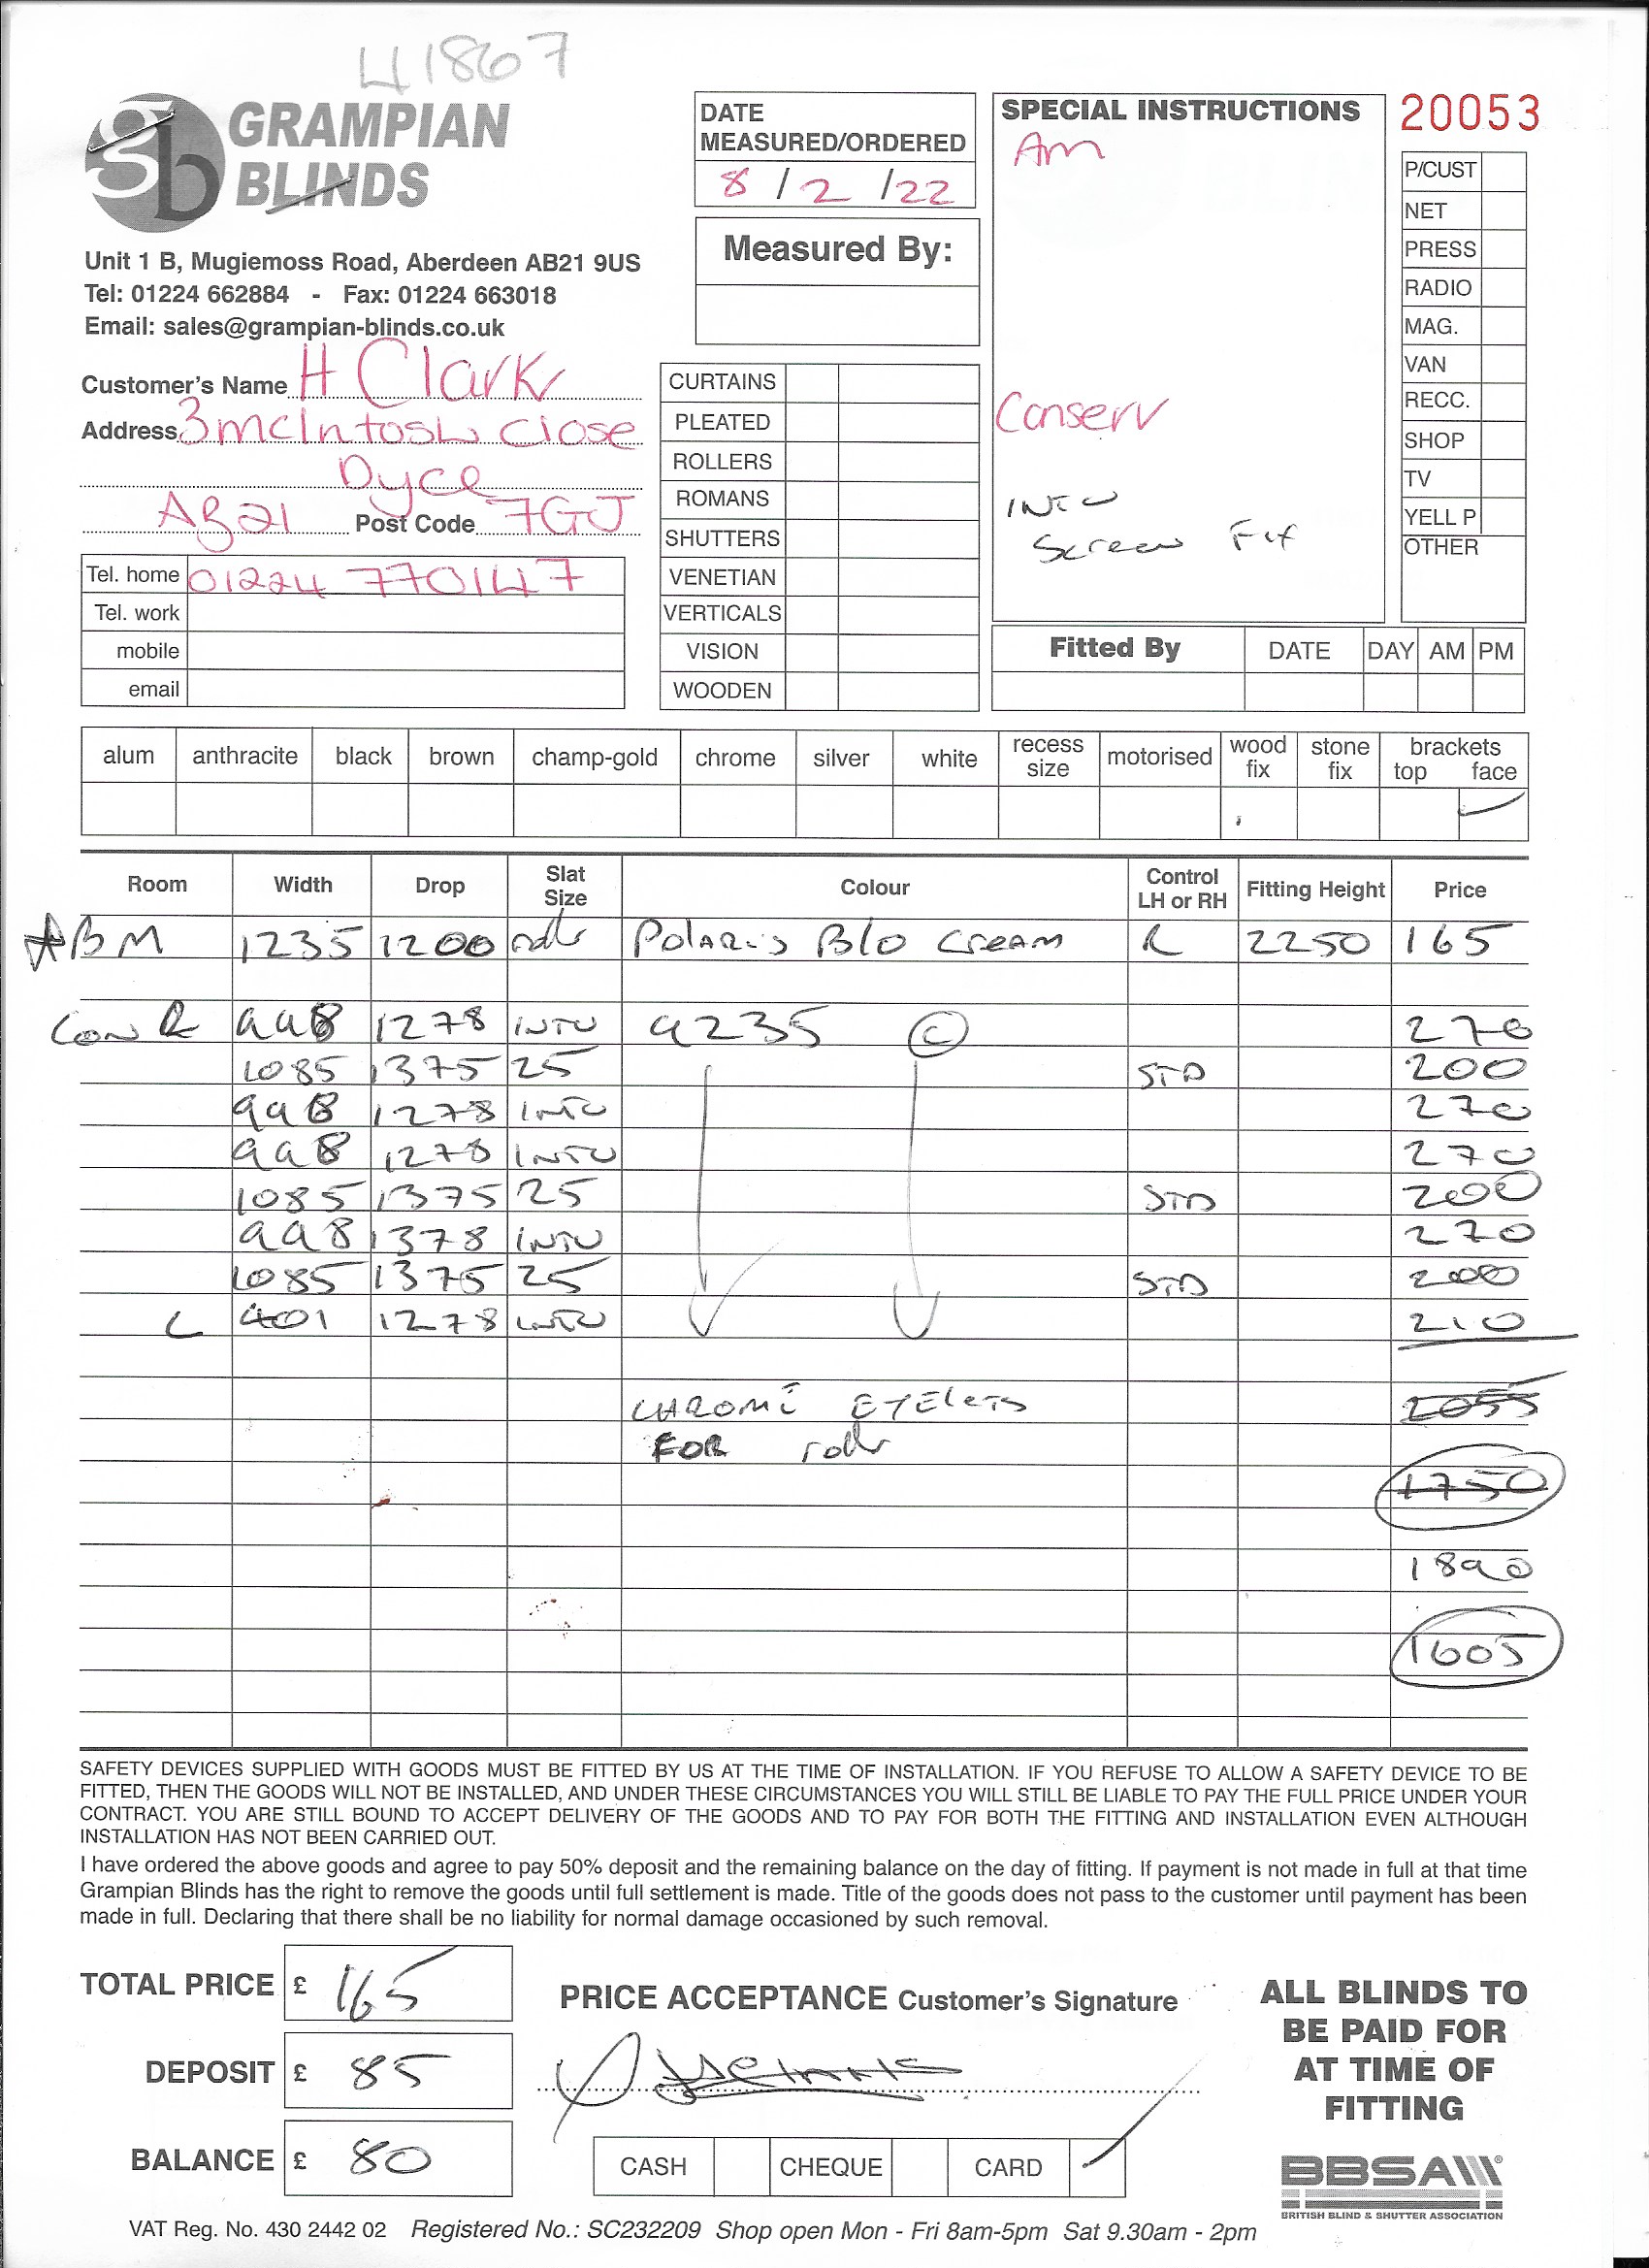 41867
GRAMPIAN
BLINDS
Unit 1 B, Mugiemoss Road, Aberdeen AB21 9US
Tel: 01224 662884 - Fax: 01224 663018
Email: sales@grampian-blinds.co.uk
Customer's Name H Clark
Address 3 McIntosh Close
Dyce
AB21 Post Code 7GJ
Tel. home 01224 770147
Tel. work
mobile
email
DATE
MEASURED/ORDERED
8 / 2 / 22
Measured By:
CURTAINS
PLEATED
ROLLERS
ROMANS
SHUTTERS
VENETIAN
VERTICALS
VISION
WOODEN
SPECIAL INSTRUCTIONS
Am
Conserv
INTU
Screw Fit
20053
P/CUST
NET
PRESS
RADIO
MAG.
VAN
RECC.
SHOP
TV
YELL P
OTHER
Fitted By DATE DAY AM PM
alum anthracite black brown champ-gold chrome silver white recess size motorised wood fix stone fix brackets top face
Room Width Drop Slat Size Colour Control LH or RH Fitting Height Price
BM 1235 1200 rolr Polaris Blo Cream R 2250 165
Con R 998 1278 INTU 9235 C 270
1085 1375 25 STD 200
998 1278 INTU 270
998 1278 INTU 270
1085 1375 25 STD 200
998 1378 INTU 270
1085 1375 25 STD 200
L 401 1278 INTU 210
CHROME EYElETS 2055
FOR rolr
1750
1890
1605
SAFETY DEVICES SUPPLIED WITH GOODS MUST BE FITTED BY US AT THE TIME OF INSTALLATION. IF YOU REFUSE TO ALLOW A SAFETY DEVICE TO BE
FITTED, THEN THE GOODS WILL NOT BE INSTALLED, AND UNDER THESE CIRCUMSTANCES YOU WILL STILL BE LIABLE TO PAY THE FULL PRICE UNDER YOUR
CONTRACT. YOU ARE STILL BOUND TO ACCEPT DELIVERY OF THE GOODS AND TO PAY FOR BOTH THE FITTING AND INSTALLATION EVEN ALTHOUGH
INSTALLATION HAS NOT BEEN CARRIED OUT.
I have ordered the above goods and agree to pay 50% deposit and the remaining balance on the day of fitting. If payment is not made in full at that time
Grampian Blinds has the right to remove the goods until full settlement is made. Title of the goods does not pass to the customer until payment has been
made in full. Declaring that there shall be no liability for normal damage occasioned by such removal.
TOTAL PRICE £ 165
DEPOSIT £ 85
BALANCE £ 80
PRICE ACCEPTANCE Customer's Signature
CASH CHEQUE CARD
ALL BLINDS TO
BE PAID FOR
AT TIME OF
FITTING
BBSA
BRITISH BLIND & SHUTTER ASSOCIATION
VAT Reg. No. 430 2442 02 Registered No.: SC232209 Shop open Mon - Fri 8am-5pm Sat 9.30am - 2pm